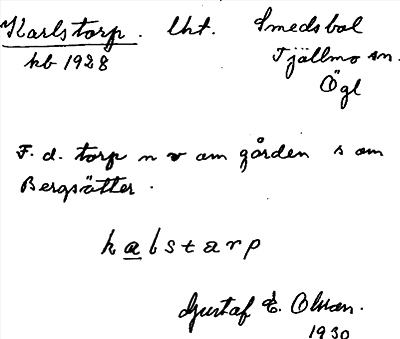 Karlstorp. lht. Smedsbol
kb 1928 Tjällmo sn.
Ögl
F. d. torp n v om gården s om
Bergsätter.
kalstarp
Gustaf E. Olsson.
1930